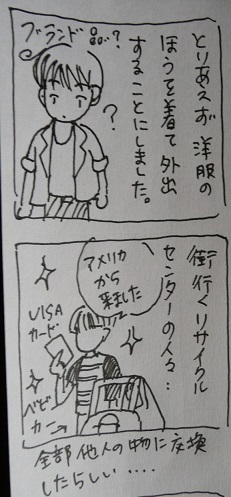 とりあえず 洋服の
ほうを着て 外出
することにしました。
ブランド品?
?
街行くリサイクル
センターの人々…
アメリカ
から
来ました
VISA
カード
ベビ
カー
全部他人の物に交換
したらしい....